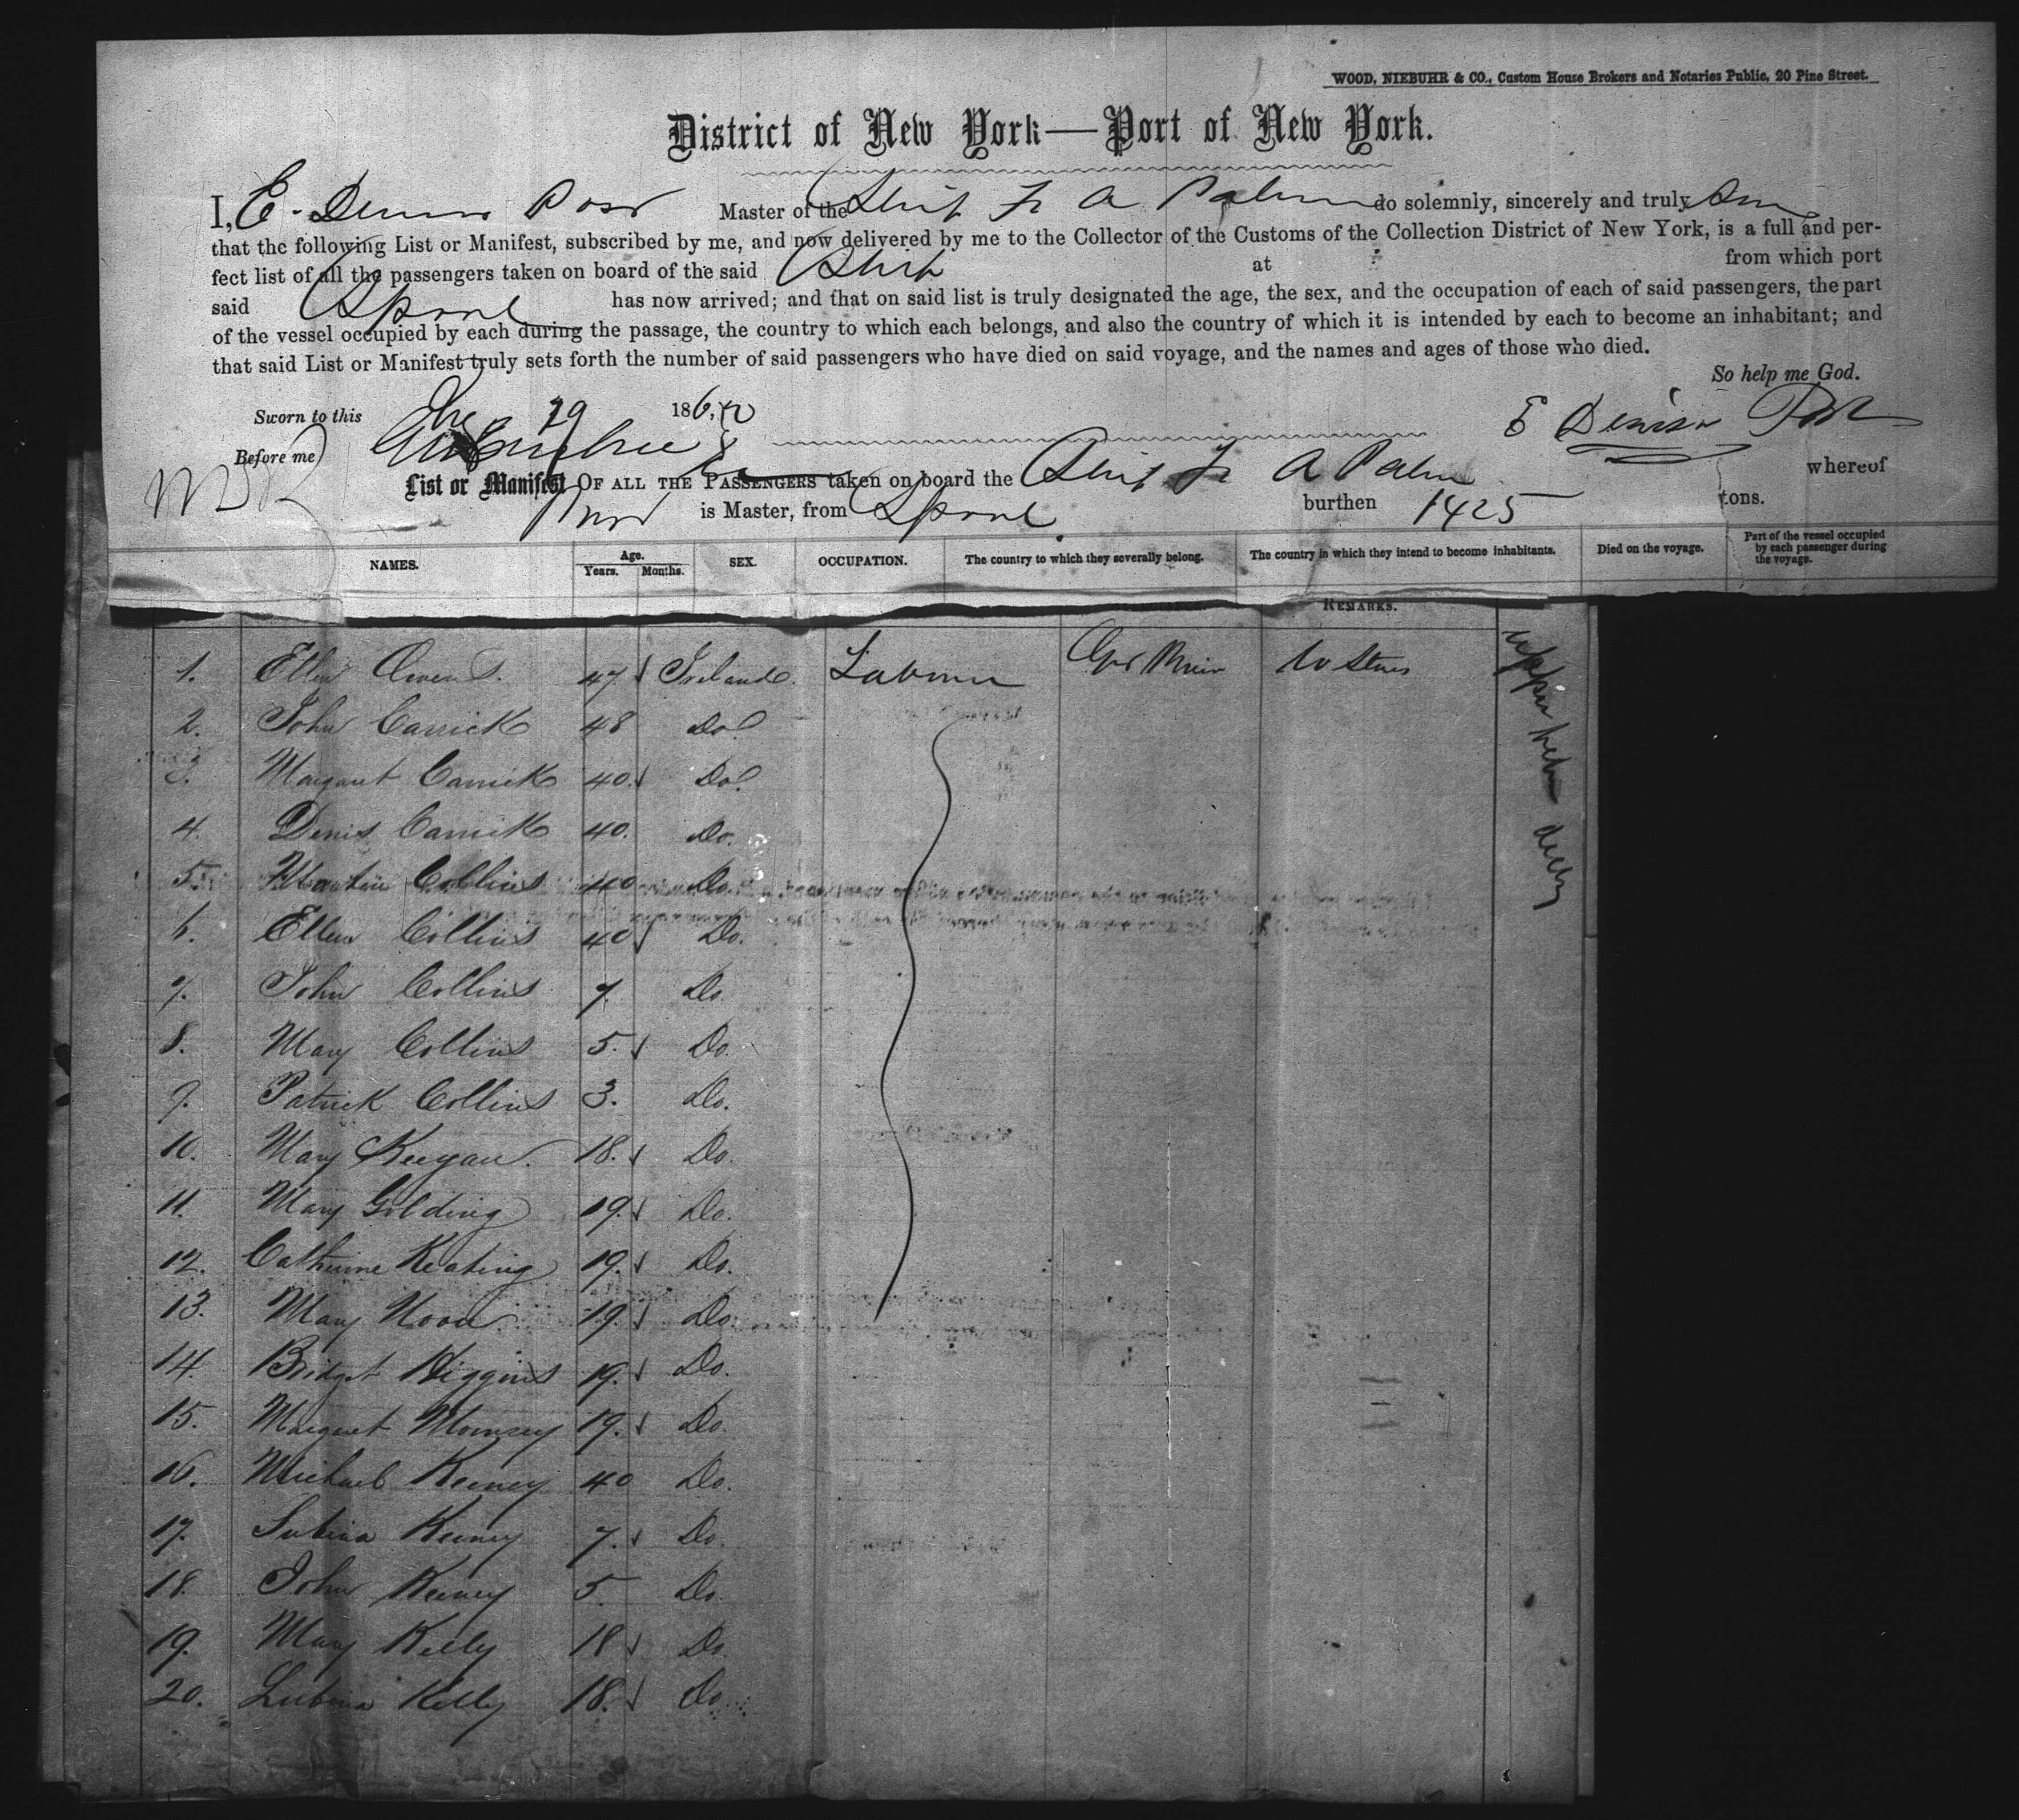 WOOD, NIEBUHR & CO., Custom House Brokers and Notaries Public, 20 Pine Street.
District of New York—Port of New York.
I, E. Master of the Ship Fr A Palmer do solemnly, sincerely and truly
that the following List or Manifest, subscribed by me, and now delivered by me to the Collector of the Customs of the Collection District of New York, is a full and per-
fect list of all the passengers taken on board of the said Ship at from which port
said Lpool has now arrived; and that on said list is truly designated the age, the sex, and the occupation of each of said passengers, the part
of the vessel occupied by each during the passage, the country to which each belongs, and also the country of which it is intended by each to become an inhabitant; and
that said List or Manifest truly sets forth the number of said passengers who have died on said voyage, and the names and ages of those who died.
So help me God.
Sworn to this 29 186
E Denison
Before me
List or Manifest OF ALL THE PASSENGERS taken on board the Ship Fr A Palmer whereof
is Master, from Lpool burthen 1425 tons.
NAMES. Age. Years. Months. SEX. OCCUPATION. The country to which they severally belong. The country in which they intend to become inhabitants. Died on the voyage. Part of the vessel occupied by each passenger during the voyage.
REMARKS.
1. Ellen Owens. 47 Ireland. Labourer U States
2. John Carrick 48 Do.
3. Margaret Carrick 40. Do.
4. Denis Carrick 40. Do.
5. Collins 40 Do.
6. Ellen Collins 40 Do.
7. John Collins 7. Do.
8. Mary Collins 5. Do.
9. Patrick Collins 3. Do.
10. Mary Keegan. 18. Do.
11. Mary Golding 19. Do.
12. Catherine Keating 19. Do.
13. Mary 19. Do.
14. Bridget Higgins 19. Do.
15. Margaret 19. Do.
16. Michael Keeney 40 Do.
17. Keeney 7. Do.
18. John Keeney 5 Do.
19. Mary Kelly 18 Do.
20. Kelly 18. Do.